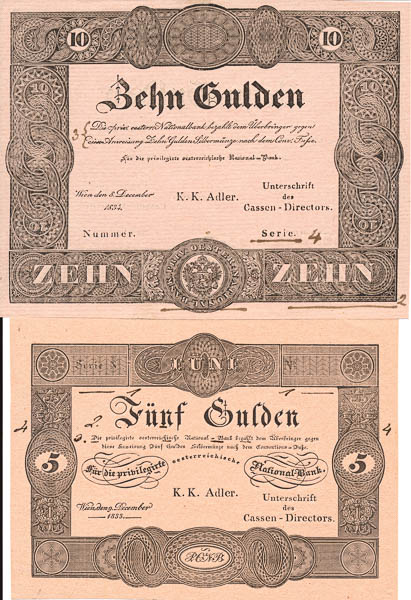 10 10
Zehn Gulden
3
Die priv. oesterr. Nationalbank bezahlt dem Überbringer gegen
diese Anweisung Zehn Gulden Silbermünze nach dem Conv. Fuße.
Für die privilegirte oesterreichische National-Bank.
Wien den 8. December
1834.
K. K. Adler.
Unterschrift
des
Cassen-Directors.
Nummer.
Serie. 4
10 10
ZEHN ZEHN
2
Serie
1 FÜNF 1
4 2 4
Fünf Gulden
3. Die privilegirte oesterreichische National-Bank bezahlt dem Überbringer gegen
diese Anweisung Fünf Gulden Silbermünze nach dem Conventions-Fuße.
5 5
Für die privilegirte oesterreichische National-Bank.
K. K. Adler.
Wien den 9. December
1833.
Unterschrift
des
Cassen-Directors.
P.Ö.N.B.